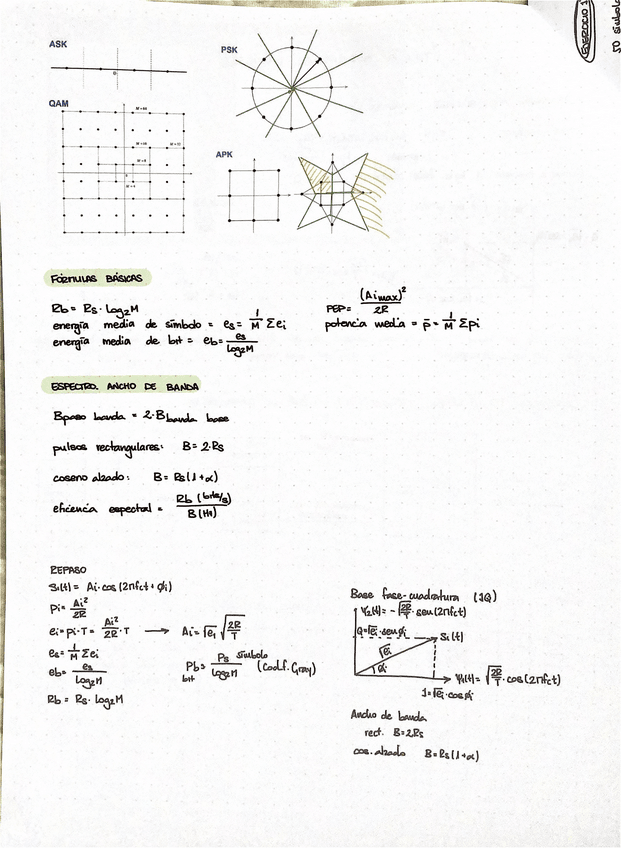 EJERCICIO 1
50 símbolo
ASK
PSK
QAM
M = 64
M = 32
M = 16
M = 8
M = 4
APK
FÓRMULAS BÁSICAS
Rb = Rs · Log2M
energía media de símbolo = es = 1/M Σei
energía media de bit = eb = es/Log2M
PEP = (Aimax)²/2R
potencia media = p̄ = 1/M Σpi
ESPECTRO. ANCHO DE BANDA
Bpaso banda = 2·Bbanda base
pulsos rectangulares: B = 2·Rs
coseno alzado: B = Rs(1+α)
eficiencia espectral = Rb (bits/s)/B (Hz)
REPASO
Si(t) = Ai·cos(2πfct + ϕi)
Pi = Ai²/2R
ei = pi·T = Ai²/2R · T → Ai = √ei √2R/T
es = 1/M Σei
eb = es/Log2M
Pb bit = Ps símbolo/Log2M (Cod.f. Gray)
Rb = Rs · Log2M
Base fase-cuadratura (IQ)
Ψ2(t) = -√2R/T · sen(2πfct)
Q = √ei · senϕi
Si(t)
√ei
ϕi
Ψ1(t) = √2R/T · cos(2πfct)
I = √ei · cosϕi
Ancho de banda
rect. B = 2Rs
cos. alzado B = Rs(1+α)